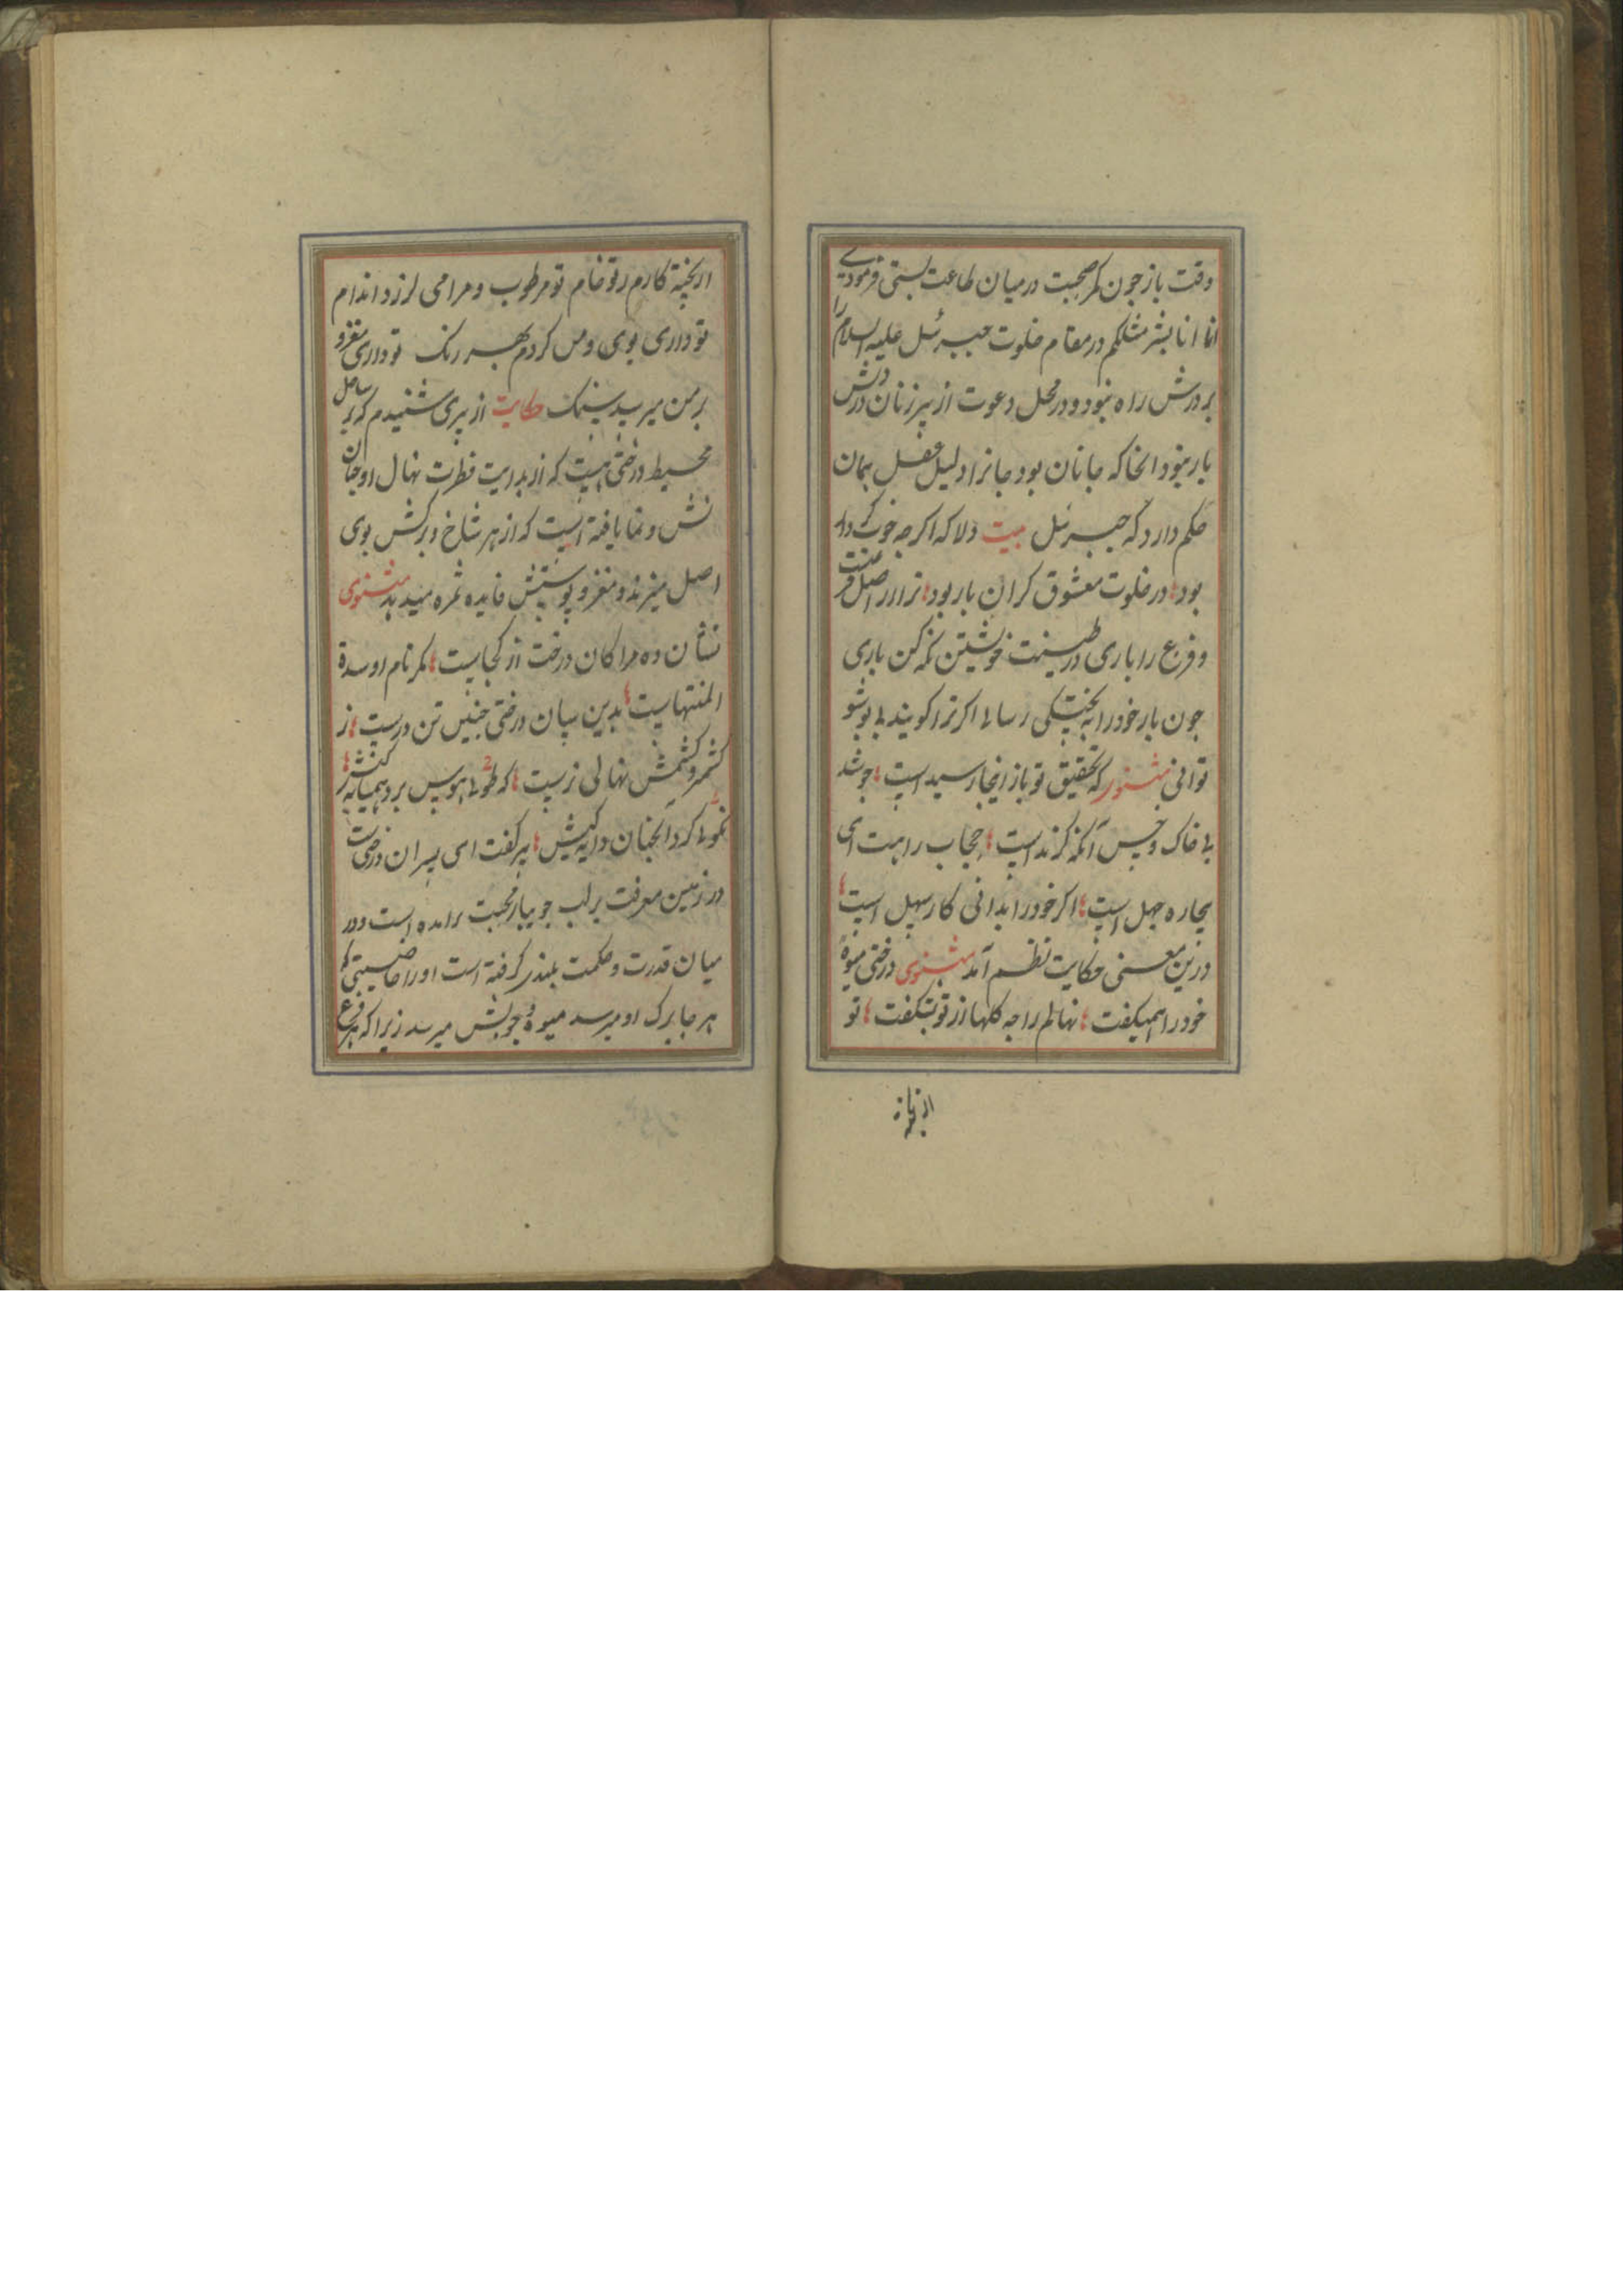 وقت باز چون کمر صحبت در میان طاعت بستی فرمودی
انما انا بشر مثلکم در مقام خلوت جبرئیل علیه السلام را
بر درش راه نبود و در محل دعوت از پیر زنان درش
بار نبود انجا که جانان بود جانرا دلیل عقل همان
حکم دارد که جبرئیل بیت دلاکه اکرچه خوب
بود در خلوت معشوق کران بار بود ترا از اصل
و فرع را باری در طینت خویشتن نکه کن باری
چون بار خود را به پختکی رسانی اکر ترا کویند
توانی مثنوی که تحقیق تو باز اینجا رسیداست چو شد
بی خاک و خس آنکه کزنداست حجاب راهت ای
بیچاره جهل است اکر خود را بدانی کار سهل است
درین معنی حکایت نظم آمد مثنوی درختی میوهٔ
خود را همیکفت نهالم را چه کلها از تو بشکفت تو
از
از پخته کارم تو خام تو مرطوب و مرا می لرزد اندام
تو داری بوی و من کردم بهر رنک تو داری مغز و
بر من میرسد سنک حکایت از پیری شنیدم که بر ساحل
محیط درختی هست که از بدایت فطرت نهال او چنان
نش و نما یافته است که از هر شاخ و برکش بوی
اصل میزند و مغز و پوستش فایده ثمره میدهد مثنوی
نشان ده مرا کان درخت از کجاست مکر نام او سدرة
المنتهاست بدین سان درختی چنین تن درست ز
کشمر و کشمش نهالی نرست که طوبی هوس برد
نکونی کرد آنچنان دایه کیش پیر کفت ای پسر ان درختیست
در زمین معرفت بر لب جویبار محبت برامده است و در
میان قدرت و حکمت بلندی کرفته است او را خاصیتی که
هر جا برک او میرسد میوه و چوبش میرسد زیرا که هر فرع